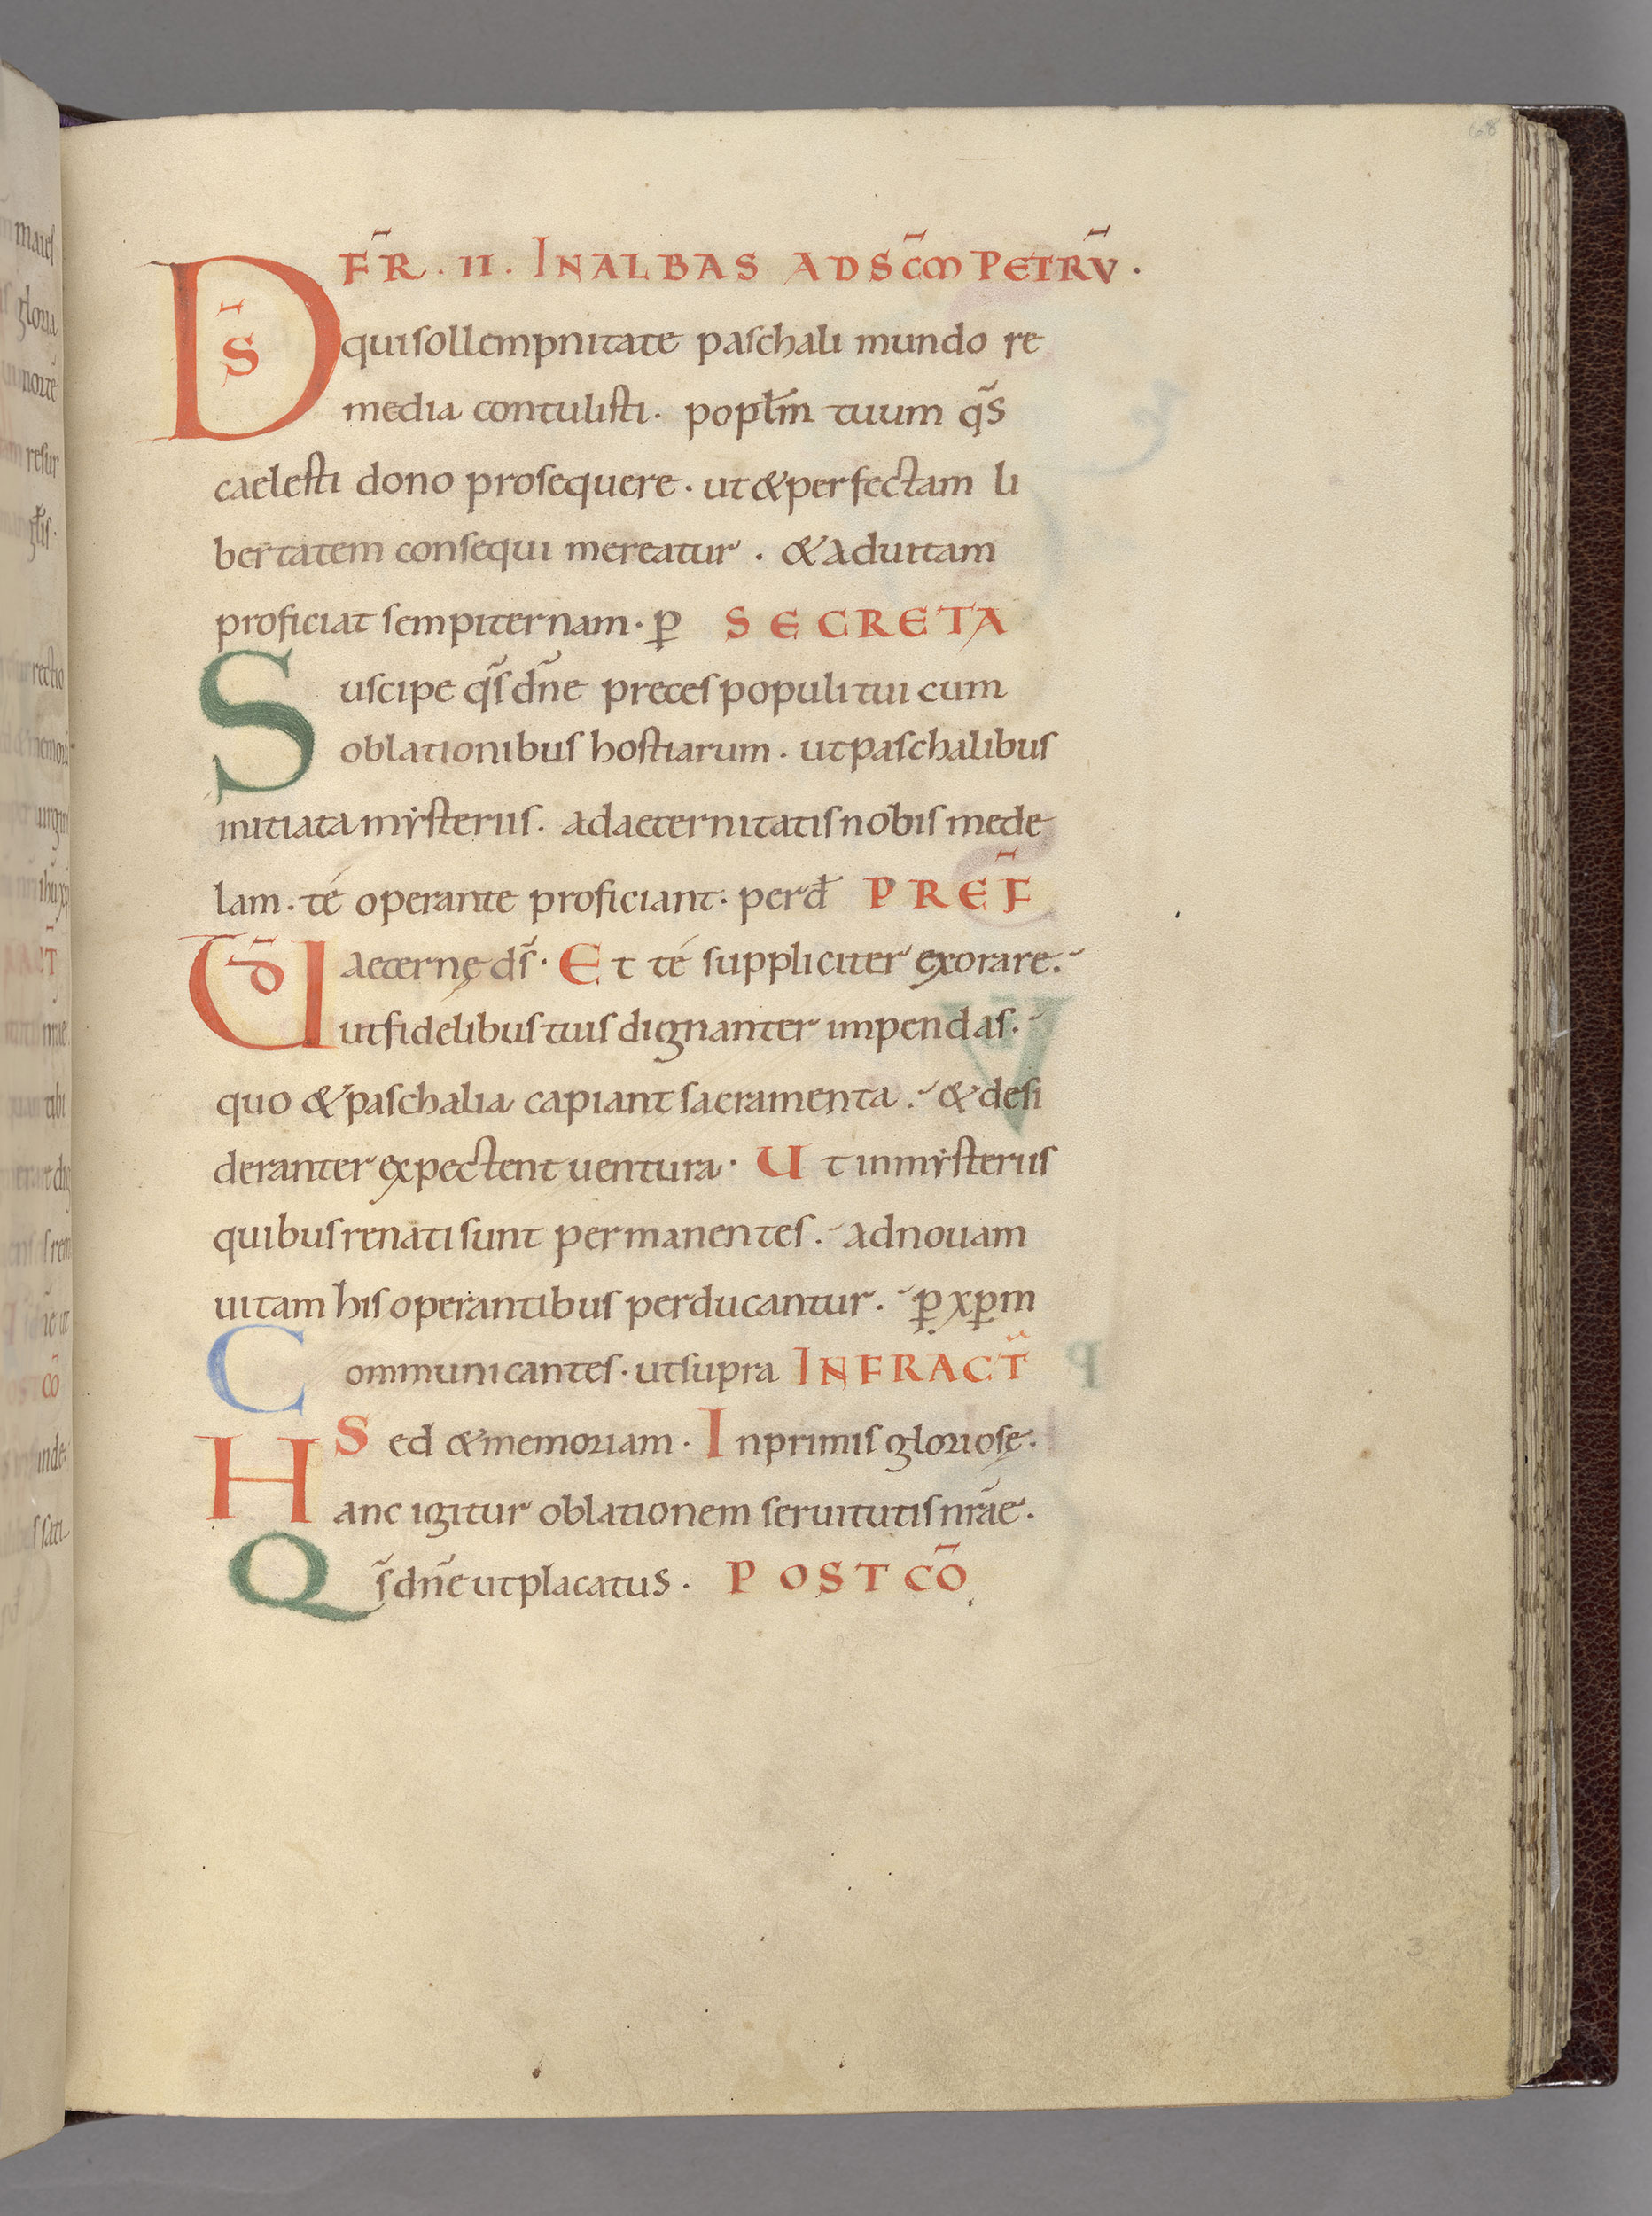 68
F̄R . II . IN ALBAS AD SC̄M PETRV̄ .
DS̄ qui sollempnitate paschali mundo re
media contulisti . popłm̄ tuum q̄s
caelesti dono prosequere . ut & perfectam li
bertatem consequi mereatur . & ad uitam
proficiat sempiternam . p̱ SECRETA
Suscipe q̄s dn̄e preces populi tui cum
oblationibus hostiarum . ut paschalibus
initiata mẏsteriis . ad aeternitatis nobis mede
lam . té operante proficiant . per đ PREF̄
UD̄ aeternę ds̄ . Et té suppliciter exorare .
ut fidelibus tuis dignanter impendas .
quo & paschalia capiant sacramenta . & desi
deranter expectent uentura . Ut in mẏsteriis
quibus renati sunt permanentes . ad nouam
uitam his operantibus perducantur . p̱ xp̱m
Communicantes . ut supra INFRA ACT̄
Sed & memoriam . Inprimis gloriosę .
Hanc igitur oblationem seruitutis nrāe .
Qs̄ dn̄e ut placatus . POST CŌ
3